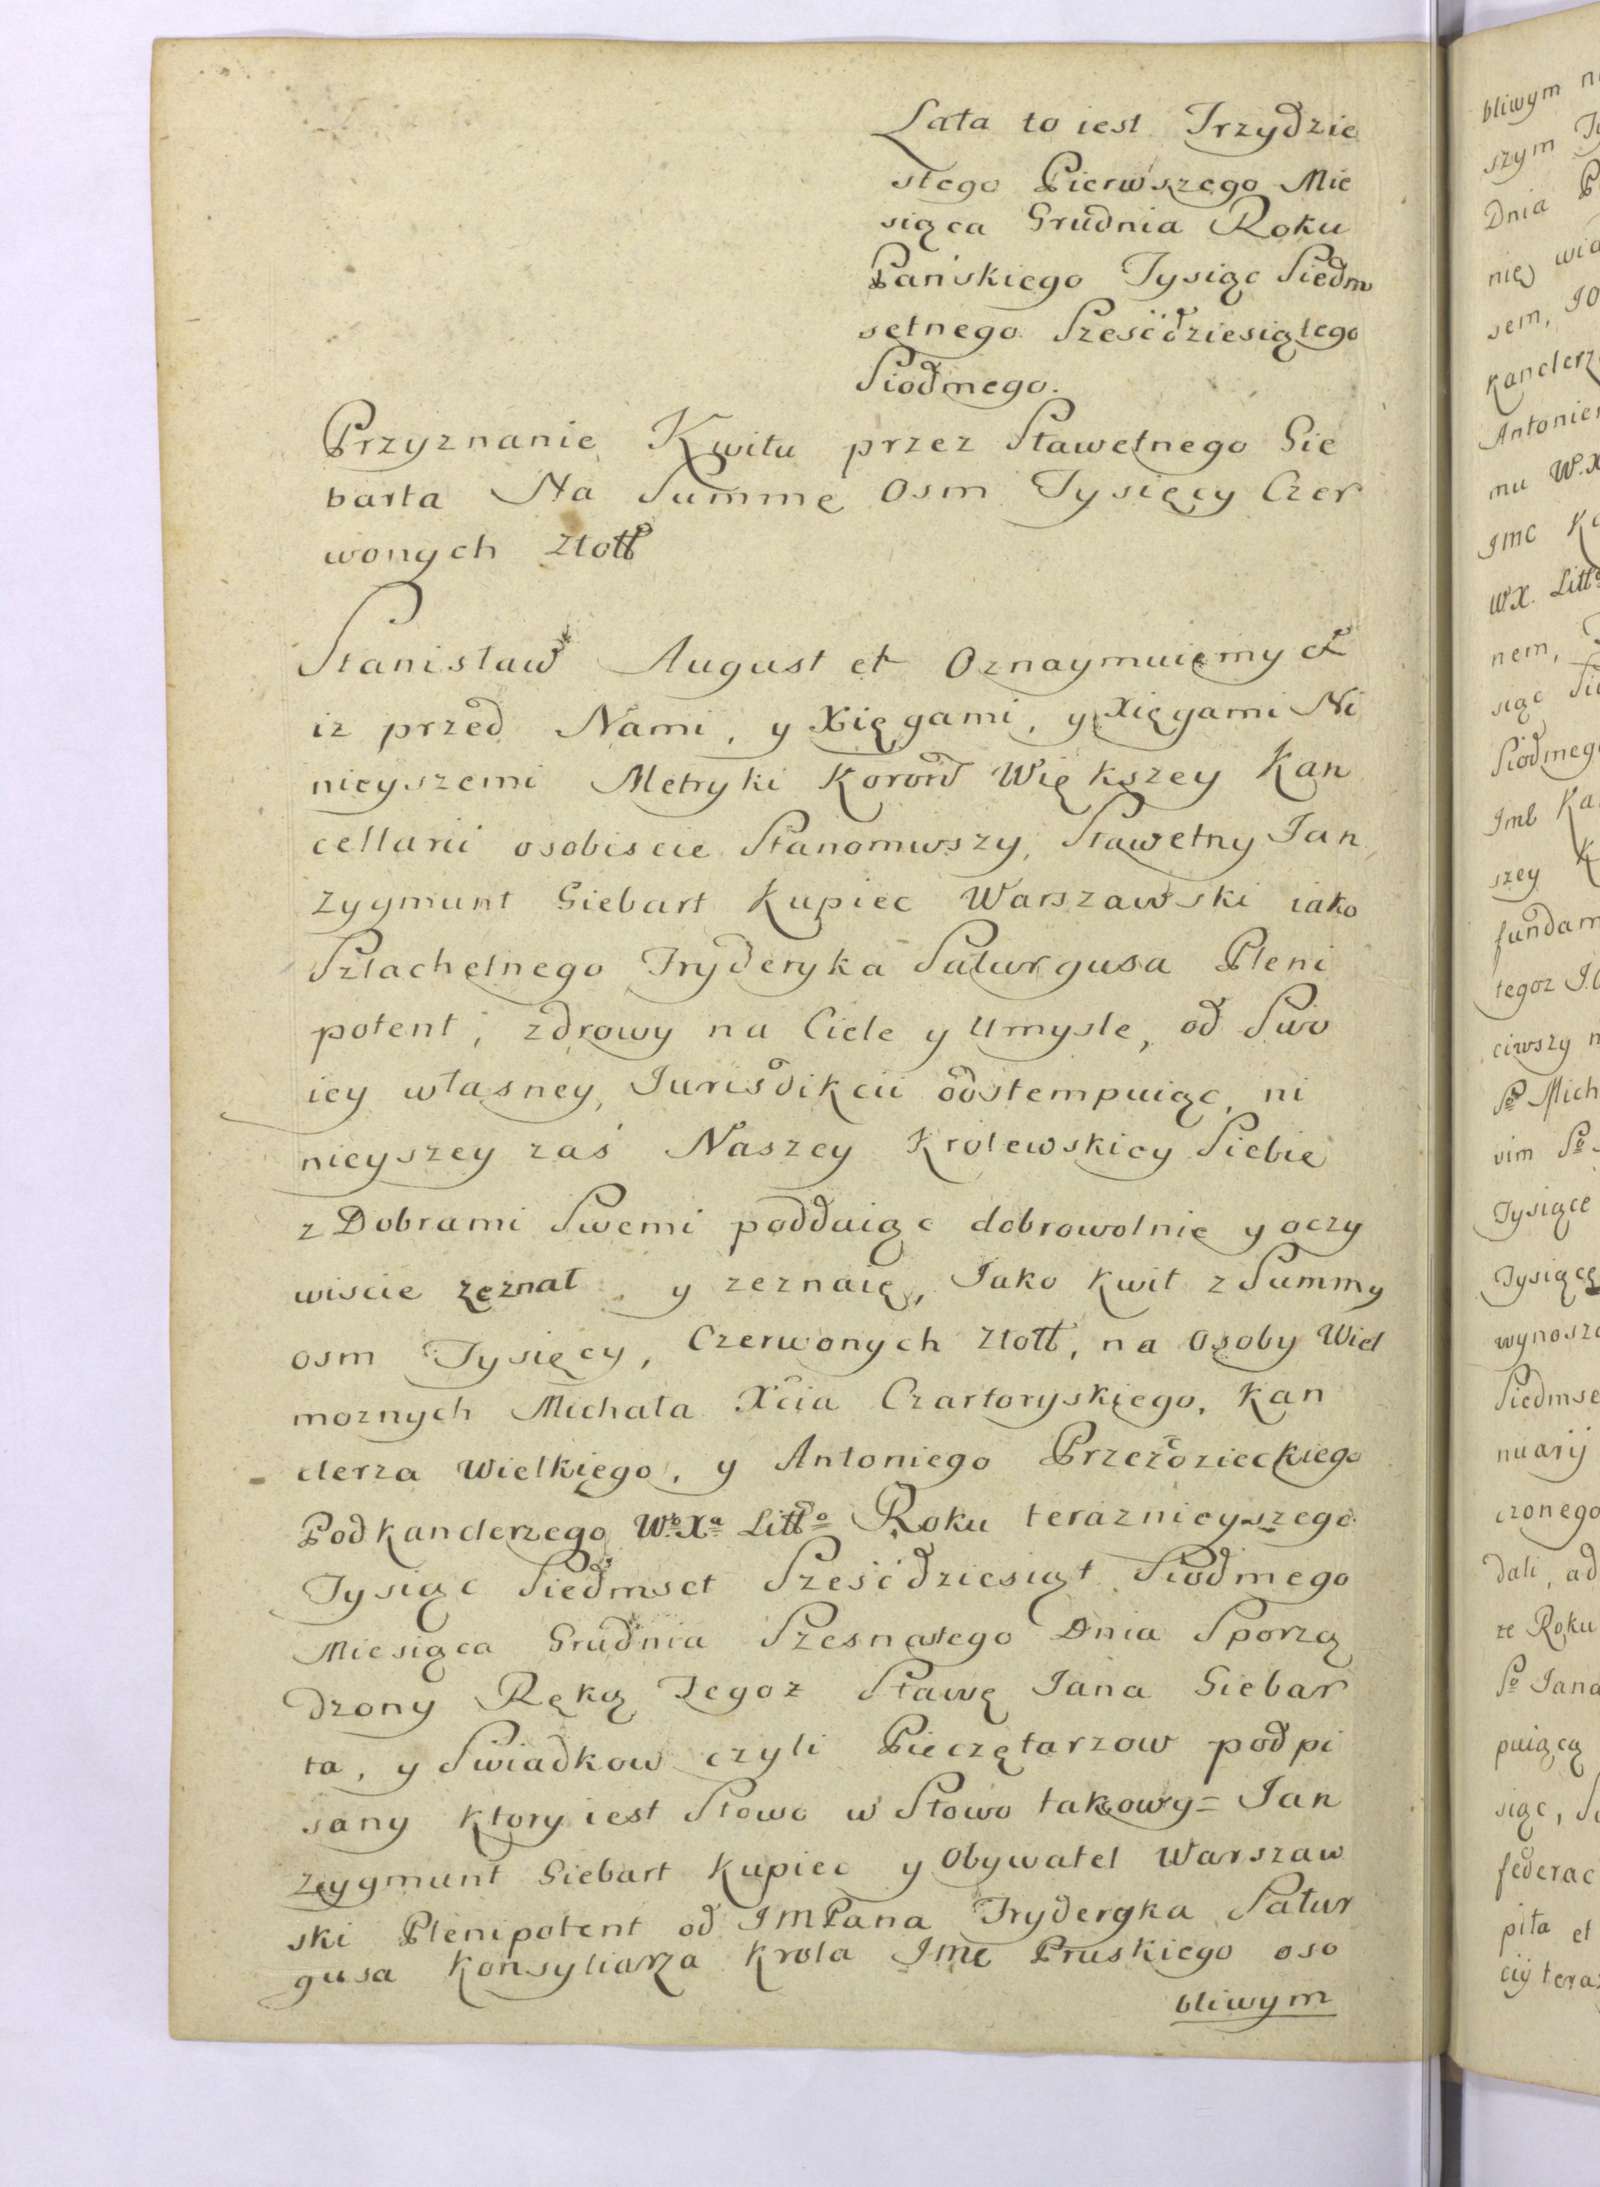 Lata to iest Trzydzie
stego Pierwszego Mie
siąca Grudnia Roku
Pańskiego Tysiąc Siedm
setnego Sześćdziesiątego
Siodmego.
Przyznanie Kwitu przez Sławetnego Gie
barta Na Summę Osm Tysięcy Czer
wonych Złotł
Stanisław August et Oznaymuiemy et
iz przed Nami, y Xięgami, y Xięgami Ni
nieyszemi Metryki Koronł Większey Kan
cellarii osobiscie Stanowszy, Sławetny Jan
Zygmunt Giebart Kupiec Warszawski iako
Szlachetnego Fryderyka Saturgusa Pleni
potent, zdrowy na Ciele y Umysle, od Swo
iey własney, Jurisdikcii odstempuiąc, ni
nieyszey zaś Naszey Krolewskiey Siebie
z Dobrami Swemi podduiąc dobrowolnie y oczy
wiscie zeznał y zeznaię, Jako Kwit z Summy
osm Tysięcy, Czerwonych Złotł, na Osoby Wiel
moznych Michała Xcia Czartoryskiego, Kan
clerza Wielkiego, y Antoniego Przezdzieckiego
Podkanclerzego Wo Xa Litto Roku teraznieyszego
Tysiąc Siedmset Sześćdziesiąt Siodmego
Miesiąca Grudnia Szesnastego Dnia Sporzą
dzony Ręką Tegoz Sławę Jana Giebar
ta, y Swiadkow czyli Pieczętarzow podpi
sany Ktory iest Słowo w Słowo takowy = Jan
Zygmunt Giebart Kupiec y Obywatel Warszaw
ski Plenipotent od JMPana Fryderyka Satur
gusa Konsyliarza Krola Jmc Pruskiego oso
bliwym
bliwym
szym
Dnia
nię
sem,
Kanclerz
mu W.X
Jmc
WX. Litto
nem,
siąc
Siodmego
szey
tegoz
ciwszy
vim
Tysiące
Tysiącę
nuarij
czonego
dali, ad
ze Roku
Jana
puiącą
siąc,
piła et